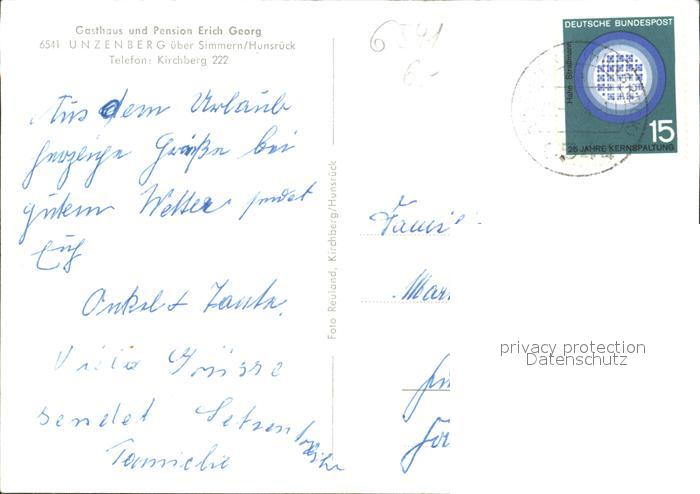 Gasthaus und Pension Erich Georg
6541 UNZENBERG über Simmern/Hunsrück
Telefon: Kirchberg 222
6541
6.-
DEUTSCHE BUNDESPOST
Hahn-Straßmann
15
25 JAHRE KERNSPALTUNG
Aus dem Urlaub
herzliche Grüße bei
gutem Wetter sendet
Euch
Onkel + Tante.
Viele Grüsse
sendet
Familie
Foto Reuland, Kirchberg/Hunsrück
Famil
Mar
privacy protection
Datenschutz